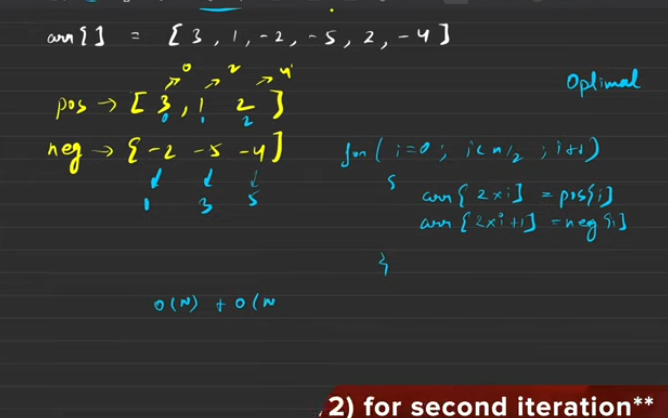 arr[] = [3, 1, -2, -5, 2, -4]
0 2 4
Optimal
pos → [3, 1 2]
0 1 2
neg → [-2 -5 -4]
for( i=0 ; i<n/2 ; i++)
1 3 5
{
arr[2×i] = pos[i]
arr[2×i+1] = neg[i]
}
O(N) + O(N
/2) for second iteration**